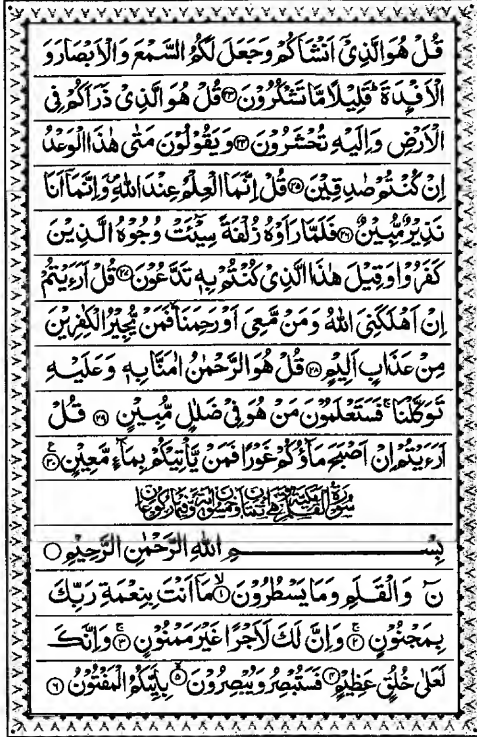 قُلْ هُوَ الَّذِیْۤ اَنْشَاَكُمْ وَجَعَلَ لَكُمُ السَّمْعَ وَالْاَبْصَارَ وَ
الْاَفْـِٕدَةَ ؕ قَلِیْلًا مَّا تَشْكُرُوْنَ ۝۲۳ قُلْ هُوَ الَّذِیْ ذَرَاَكُمْ فِی
الْاَرْضِ وَاِلَیْهِ تُحْشَرُوْنَ ۝۲۴ وَیَقُوْلُوْنَ مَتٰی هٰذَا الْوَعْدُ
اِنْ كُنْتُمْ صٰدِقِیْنَ ۝۲۵ قُلْ اِنَّمَا الْعِلْمُ عِنْدَ اللّٰهِ ۪ وَاِنَّمَاۤ اَنَا
نَذِیْرٌ مُّبِیْنٌ ۝۲۶ فَلَمَّا رَاَوْهُ زُلْفَةً سِیْٓـَٔتْ وُجُوْهُ الَّذِیْنَ
كَفَرُوْا وَقِیْلَ هٰذَا الَّذِیْ كُنْتُمْ بِهٖ تَدَّعُوْنَ ۝۲۷ قُلْ اَرَءَیْتُمْ
اِنْ اَهْلَكَنِیَ اللّٰهُ وَمَنْ مَّعِیَ اَوْ رَحِمَنَا ۙ فَمَنْ یُّجِیْرُ الْكٰفِرِیْنَ
مِنْ عَذَابٍ اَلِیْمٍ ۝۲۸ قُلْ هُوَ الرَّحْمٰنُ اٰمَنَّا بِهٖ وَعَلَیْهِ
تَوَكَّلْنَا ۚ فَسَتَعْلَمُوْنَ مَنْ هُوَ فِیْ ضَلٰلٍ مُّبِیْنٍ ۝۲۹ قُلْ
اَرَءَیْتُمْ اِنْ اَصْبَحَ مَآؤُكُمْ غَوْرًا فَمَنْ یَّاْتِیْكُمْ بِمَآءٍ مَّعِیْنٍ ۝۳۰
بِسْمِ اللّٰهِ الرَّحْمٰنِ الرَّحِیْمِ ۝
نٓ وَالْقَلَمِ وَمَا یَسْطُرُوْنَ ۙ۝۱ مَاۤ اَنْتَ بِنِعْمَةِ رَبِّكَ
بِمَجْنُوْنٍ ۚ۝۲ وَاِنَّ لَكَ لَاَجْرًا غَیْرَ مَمْنُوْنٍ ۚ۝۳ وَاِنَّكَ
لَعَلٰی خُلُقٍ عَظِیْمٍ ۝۴ فَسَتُبْصِرُ وَیُبْصِرُوْنَ ۙ۝۵ بِاَیِّىكُمُ الْمَفْتُوْنُ ۝۶